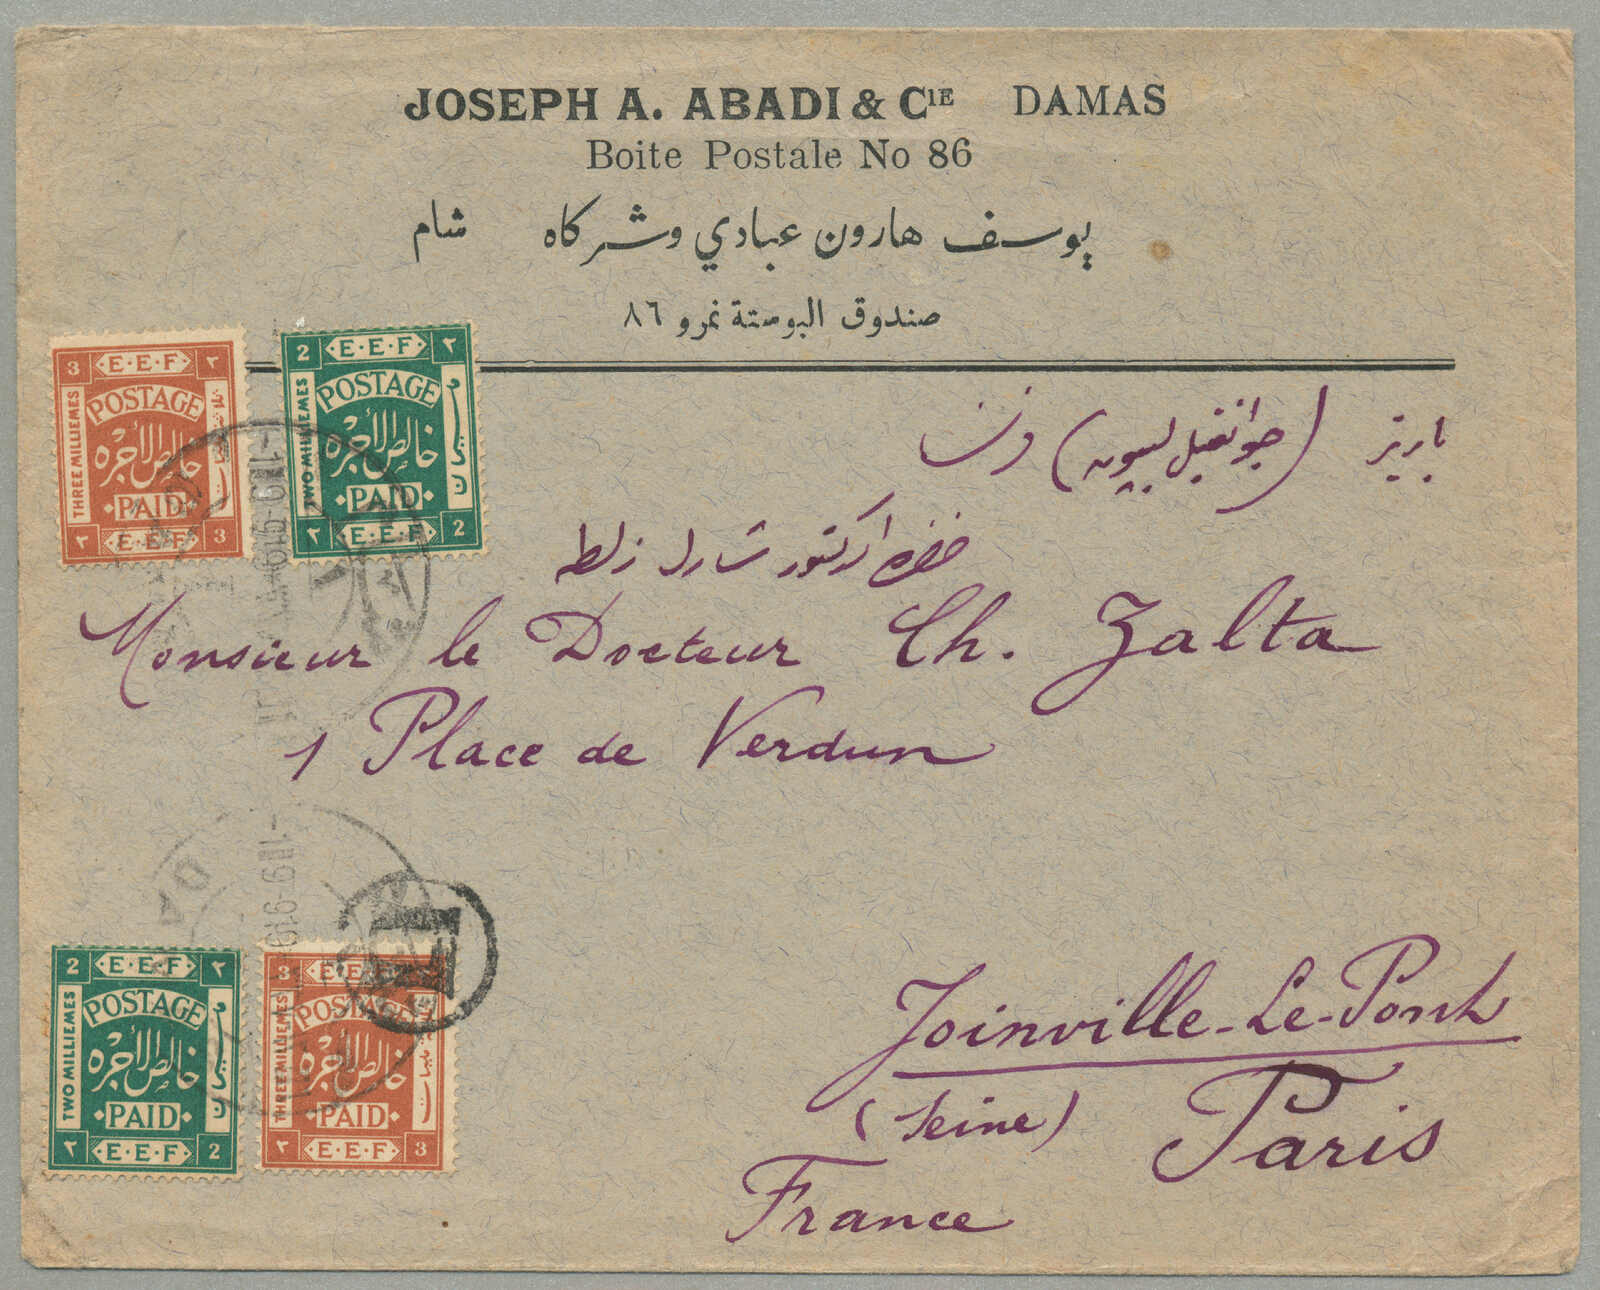 JOSEPH A. ABADI & CIE DAMAS
Boite Postale No 86
يوسف هارون عبادي وشركاه شام
صندوق البوستة نمرو ٨٦
3 E·E·F ٣
POSTAGE
THREE MILLIEMES
خالص الأجره
PAID
٣ E·E·F 3
2 E·E·F ٢
POSTAGE
TWO MILLIEMES
خالص الأجره
PAID
٢ E·E·F 2
باريز (جوانفيل لبون) فرنسا
حضرة الدكتور شارل زلطه
Monsieur le Docteur Ch. Zalta
1 Place de Verdun
Joinville-Le-Pont
(Seine) Paris
France
T
2 E·E·F ٢
POSTAGE
TWO MILLIEMES
خالص الأجره
PAID
٢ E·E·F 2
3 E·E·F
POSTAGE
THREE MILLIEMES
خالص الأجره
PAID
٣ E·E·F 3